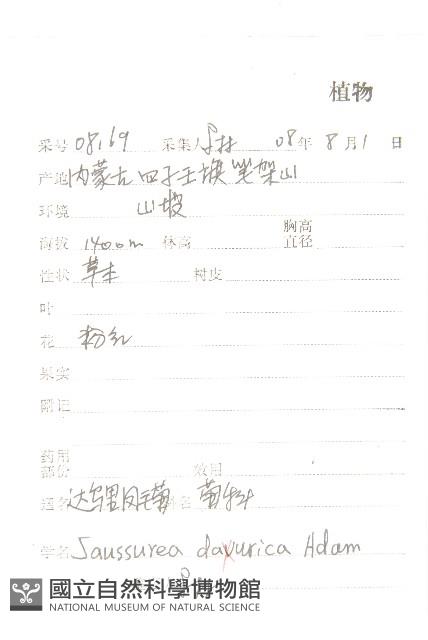 植物
采号 08169 采集 08年 8月1日
产地 内蒙古四子王旗笔架山
环境 山坡
海拔 1400m 体高 胸高直径
性状 草本 树皮
叶
花 粉红
果实
附记
药用部份 效用
达乌里风毛菊 科名 菊科
学名 Saussurea daxurica Adam
國立自然科學博物館
NATIONAL MUSEUM OF NATURAL SCIENCE